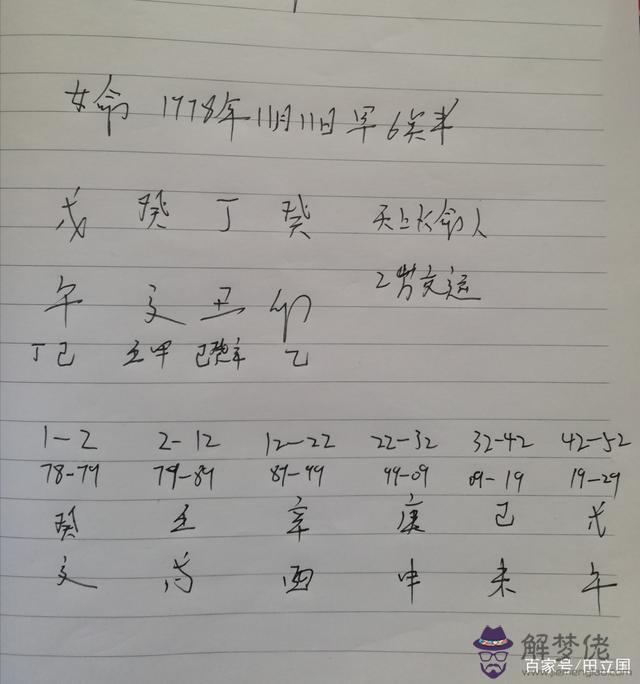 女命 1978年11月11日早6点半
戊 癸 丁 癸 天上火命人
午 亥 丑 卯 2岁交运
丁己 壬甲 己癸辛 乙
1-2 2-12 12-22 22-32 32-42 42-52
78-79 79-89 89-99 99-09 09-19 19-29
癸 壬 辛 庚 己 戊
亥 戌 酉 申 未 午
解梦佬
www.jiemenglao.com
百家号/田立国